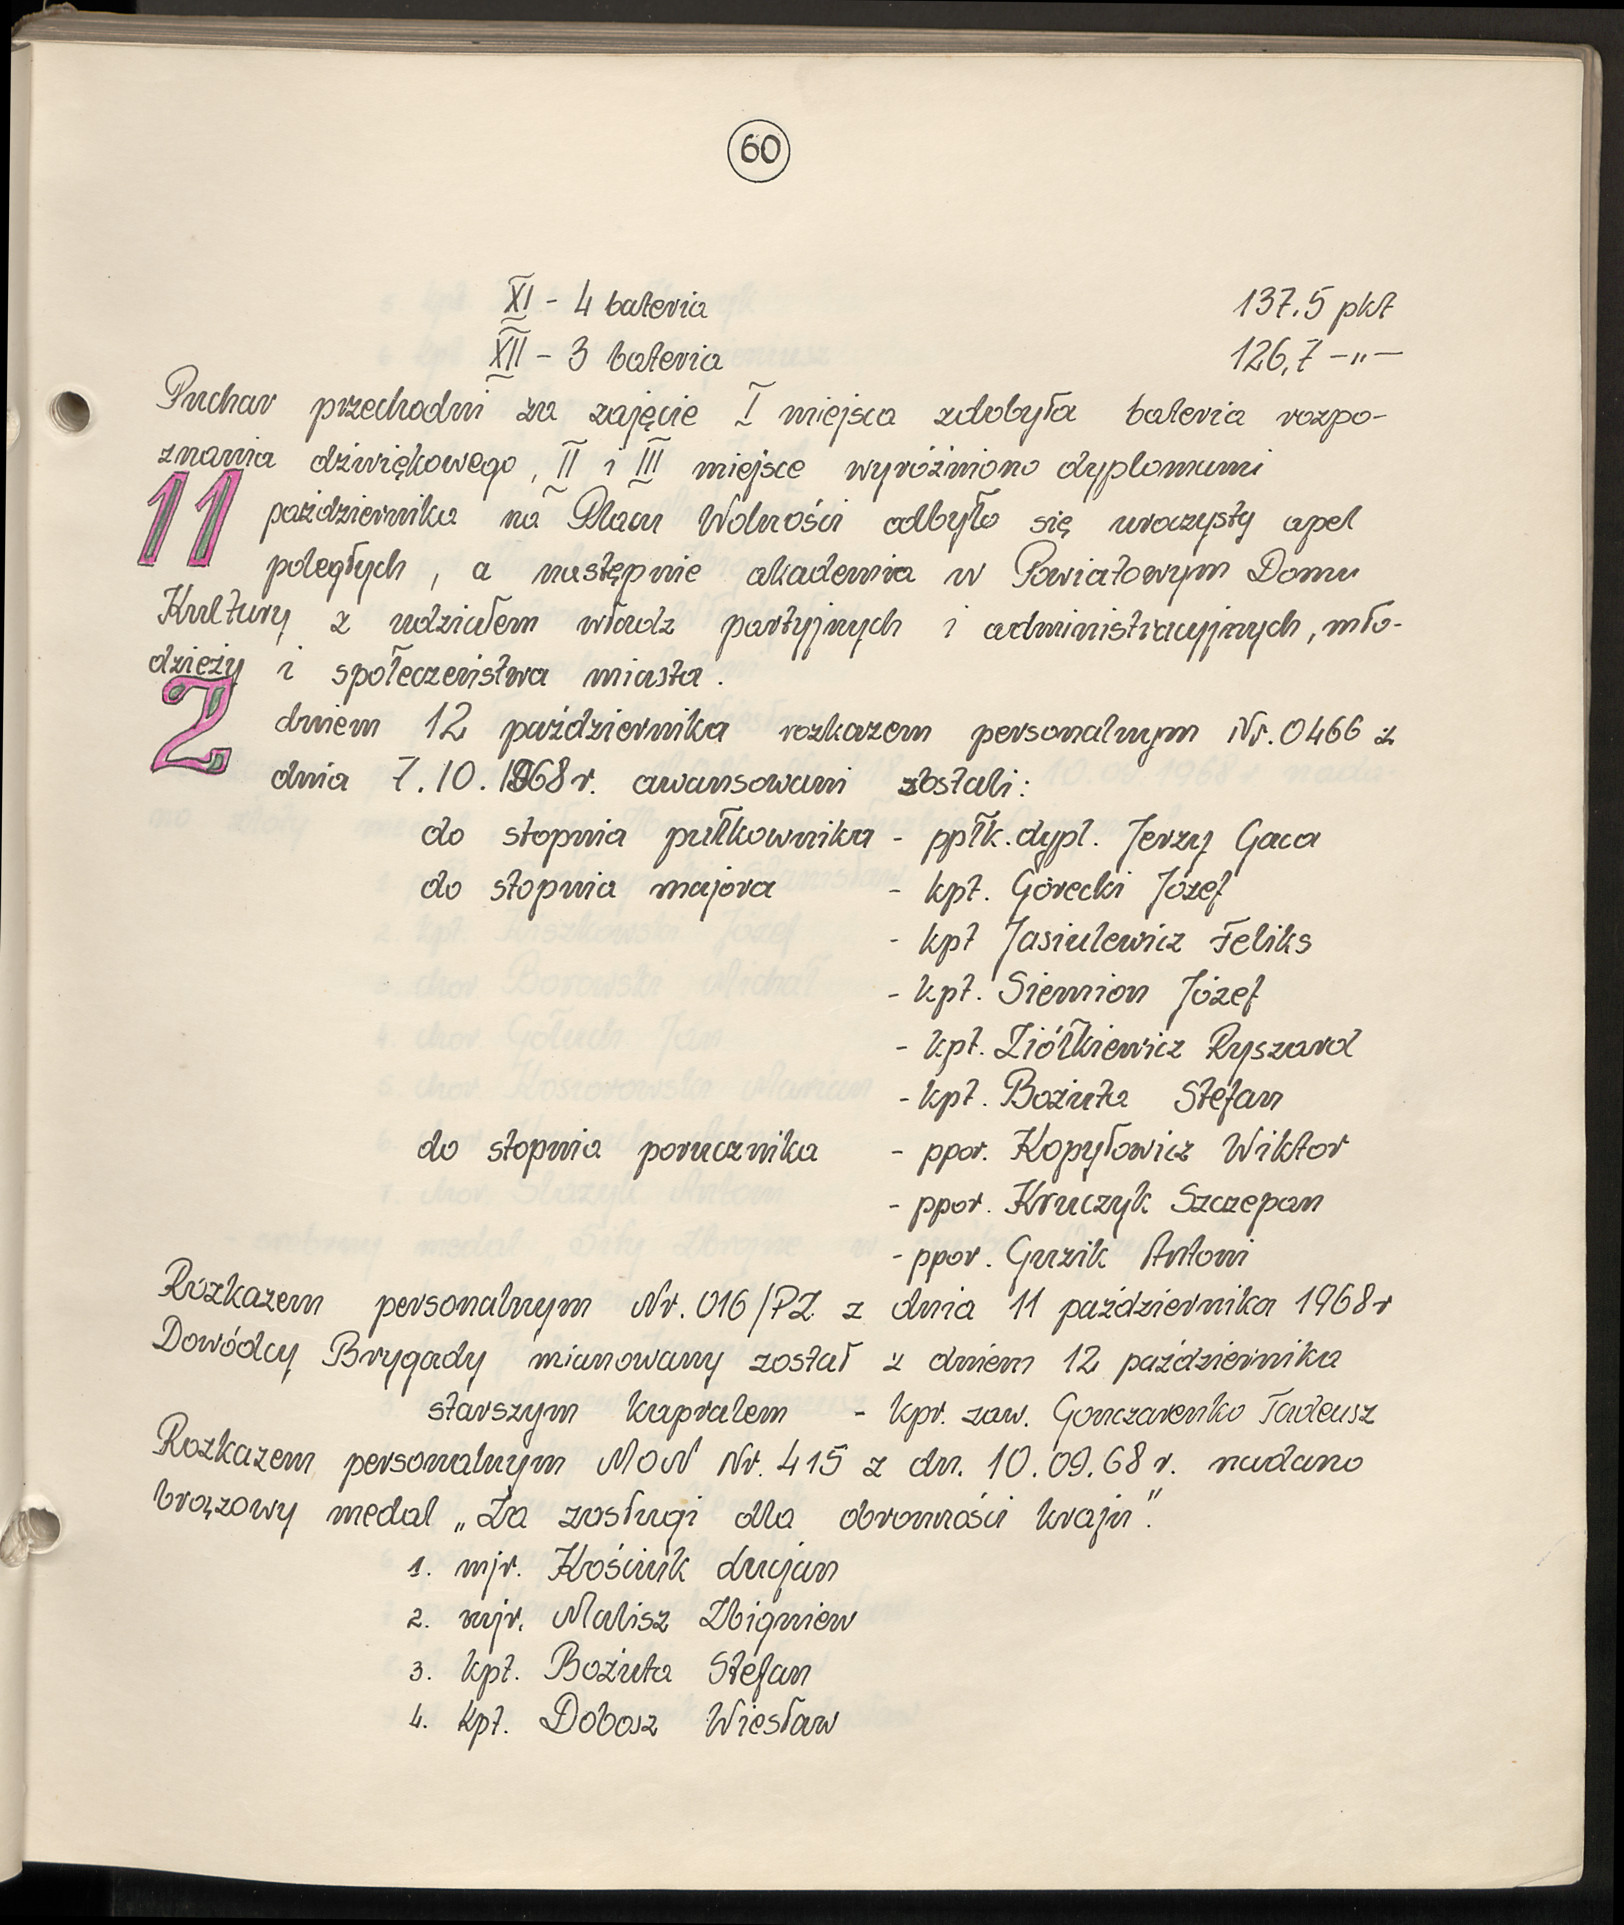 60
XI - 4 bateria 137.5 pkt
XII - 3 bateria 126,7 -„-
Puchar przechodni za zajęcie I miejsca zdobyła bateria rozpo-
znania dźwiękowego, II i III miejsce wyróżniono dyplomami
11 października na Placu Wolności odbyło się uroczysty apel
poległych, a następnie akademia w Powiatowym Domu
Kultury z udziałem władz partyjnych i administracyjnych, mło-
dzieży i społeczeństwa miasta.
Z dniem 12 października rozkazem personalnym Nr. 0466 z
dnia 7.10.1968 r. awansowani zostali:
do stopnia pułkownika - ppłk. dypl. Jerzy Gaca
do stopnia majora - kpt. Górecki Józef
- kpt Jasiulewicz Feliks
- kpt. Siemion Józef
- kpt. Ziółkiewicz Ryszard
- kpt. Bożuta Stefan
do stopnia porucznika - ppor. Kopyłowicz Wiktor
- ppor. Kruczyk Szczepan
- ppor. Guzik Antoni
Rozkazem personalnym Nr. 016/PZ z dnia 11 października 1968 r
Dowódcy Brygady mianowany został z dniem 12 października
starszym kapralem - kpr. zaw. Gonczarenko Tadeusz
Rozkazem personalnym MON Nr. 415 z dn. 10.09.68 r. nadano
brązowy medal „Za zasługi dla obronności kraju".
1. mjr. Kościuk Lucjan
2. mjr. Malisz Zbigniew
3. kpt. Bożuta Stefan
4. kpt. Dobosz Wiesław